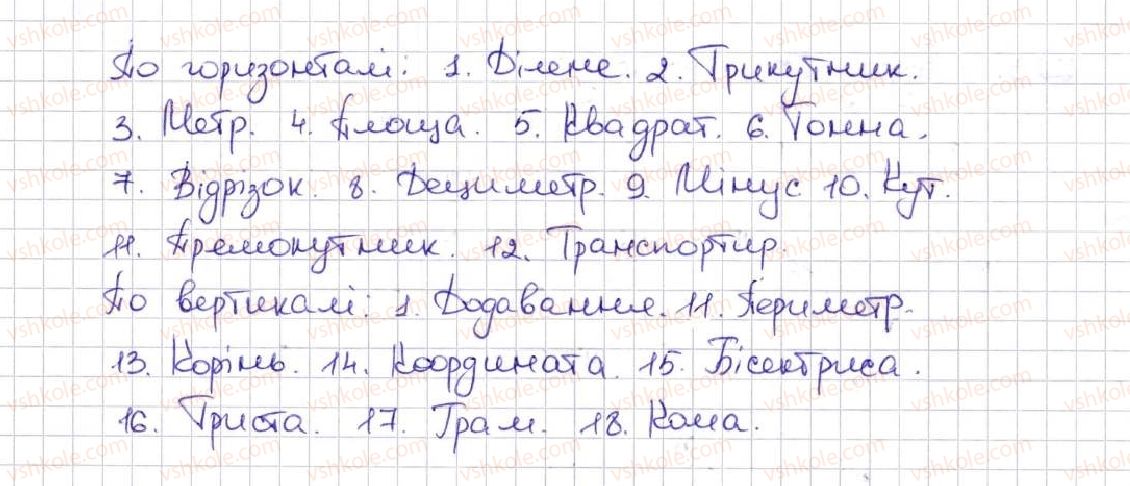 По горизонталі: 1. Ділене. 2. Трикутник.
3. Метр. 4. Площа. 5. Квадрат. 6. Тонна.
7. Відрізок. 8. Дециметр. 9. Мінус 10. Кут.
11. Прямокутник. 12. Транспортир.
По вертикалі: 1. Додавання. 11. Периметр.
13. Корінь. 14. Координата. 15. Бісектриса.
16. Триста. 17. Грам. 18. Кома.